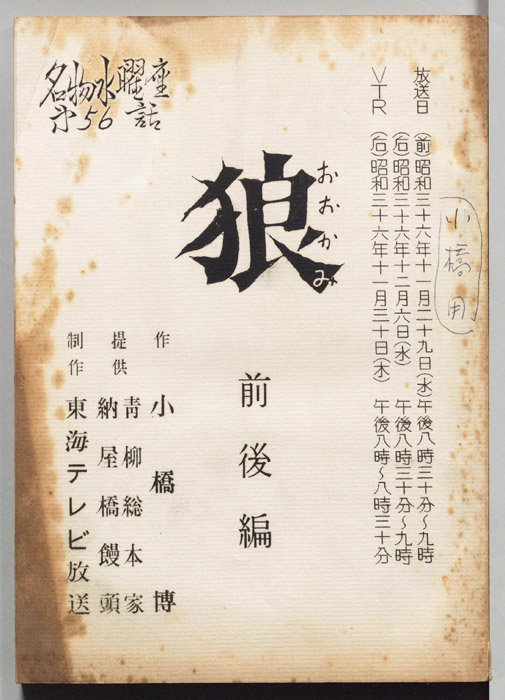 名物水曜座
第56話
放送日 (前)昭和三十六年十一月二十九日(水)午後八時三十分～九時
(后)昭和三十六年十二月六日(水) 午後八時三十分～九時
VTR (后)昭和三十六年十一月三十日(木) 午後八時～八時三十分
小橋用
狼
おおかみ
前後編
作 小橋博
提供 青柳総本家
納屋橋饅頭
制作 東海テレビ放送